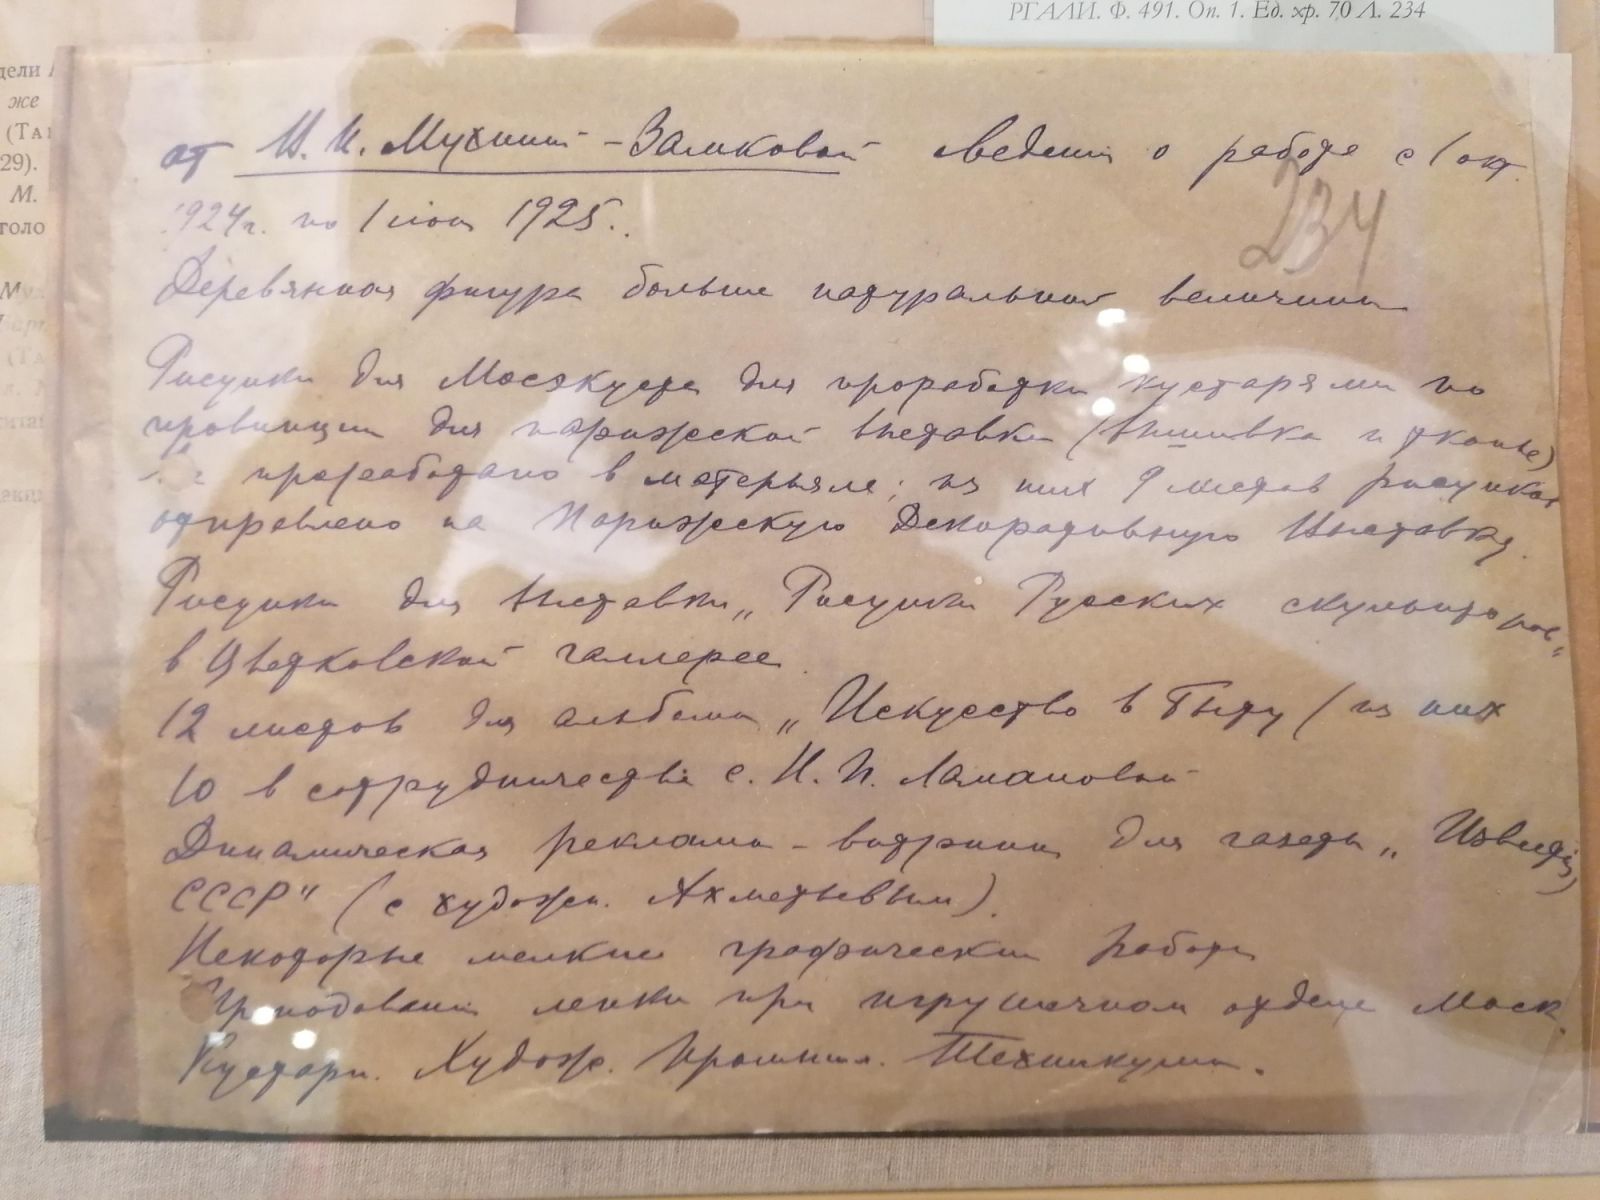 РГАЛИ. Ф. 491. Оп. 1. Ед. хр. 70 Л. 234
дели
же
(Та
29).
М.
голо
от В. И. Мухиной-Замковой сведения о работе с 1 окт.
1924г. по 1 июня 1925.
234
Деревянная фигура больше натуральной величины
Рисунки для Мосэкуста для проработки кустарями по
провинции для парижской выставки (вышивка и тканье)
проработано в матерьяле; из них 9 листов рисунков
отправлено на Парижскую Декоративную Выставку.
Рисунки для выставки „Рисунки Русских скульпторов"
в Цветковской галлерее.
12 листов для альбома „Искусство в Быту (из них
10 в сотрудничестве с. Н. П. Ламановой
Динамическая реклама-витрина для газеты „Известия
СССР" (с художн. Ахметьевым).
Некоторые мелкие графические работы
Преподавание лепки при игрушечном отделе Моск.
Кустарн. Худож. Промышл. Техникума.